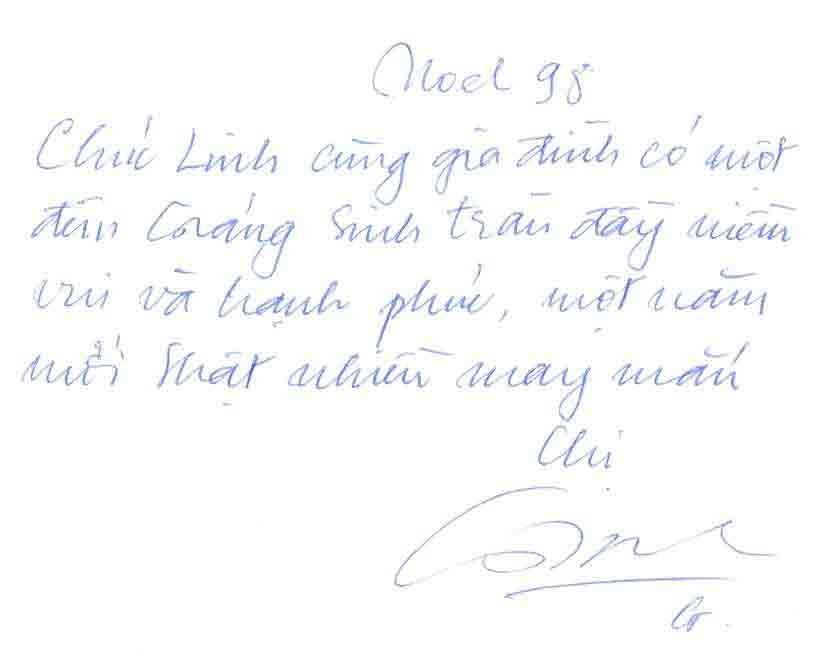 Noel 98
Chúc Linh cùng gia đình có một
đêm Giáng Sinh tràn đầy niềm
vui và hạnh phúc, một năm
mới thật nhiều may mắn
Chị